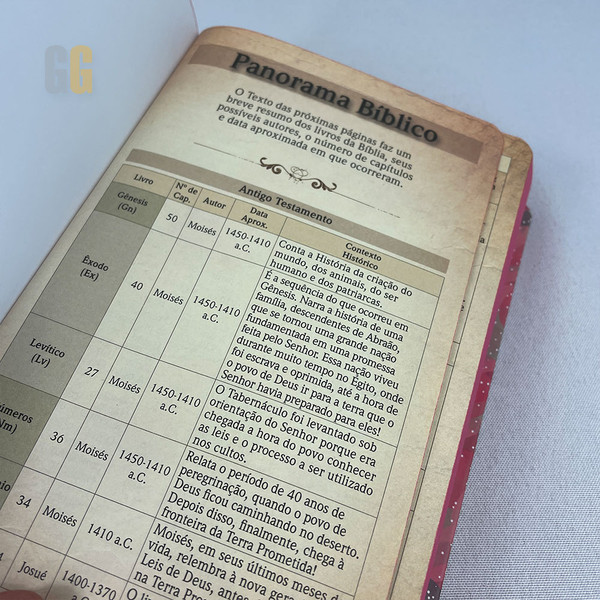 GG
Panorama Bíblico
O Texto das próximas páginas faz um
breve resumo dos livros da Bíblia, seus
possíveis autores, o número de capítulos
e data aproximada em que ocorreram.
Antigo Testamento
Livro
Nº de
Cap.
Autor
Data
Aprox.
Contexto
Histórico
Gênesis
(Gn)
50
Moisés
1450-1410
a.C.
Conta a História da criação do
mundo, dos animais, do ser
humano e dos patriarcas.
Êxodo
(Ex)
40
Moisés
1450-1410
a.C.
É a sequência do que ocorreu em
Gênesis. Narra a história de uma
família, descendentes de Abraão,
que se tornou uma grande nação
fundamentada em uma promessa
feita pelo Senhor. Essa nação viveu
durante muito tempo no Egito, onde
foi escrava e oprimida, até a hora de
o povo de Deus ir para a terra que o
Senhor havia preparado para eles!
Levítico
(Lv)
27
Moisés
1450-1410
a.C.
O Tabernáculo foi levantado sob
orientação do Senhor porque era
chegada a hora do povo conhecer
as leis e o processo a ser utilizado
nos cultos.
úmeros
Nm)
36
Moisés
1450-1410
a.C.
Relata o período de 40 anos de
peregrinação, quando o povo de
Deus ficou caminhando no deserto.
Depois disso, finalmente, chega à
fronteira da Terra Prometida!
34
Moisés
1410 a.C.
Moisés, em seus últimos meses d
vida, relembra à nova gera
Leis de Deus, antes
na Terra Pro
Josué
1400-1370
a.C.
O li